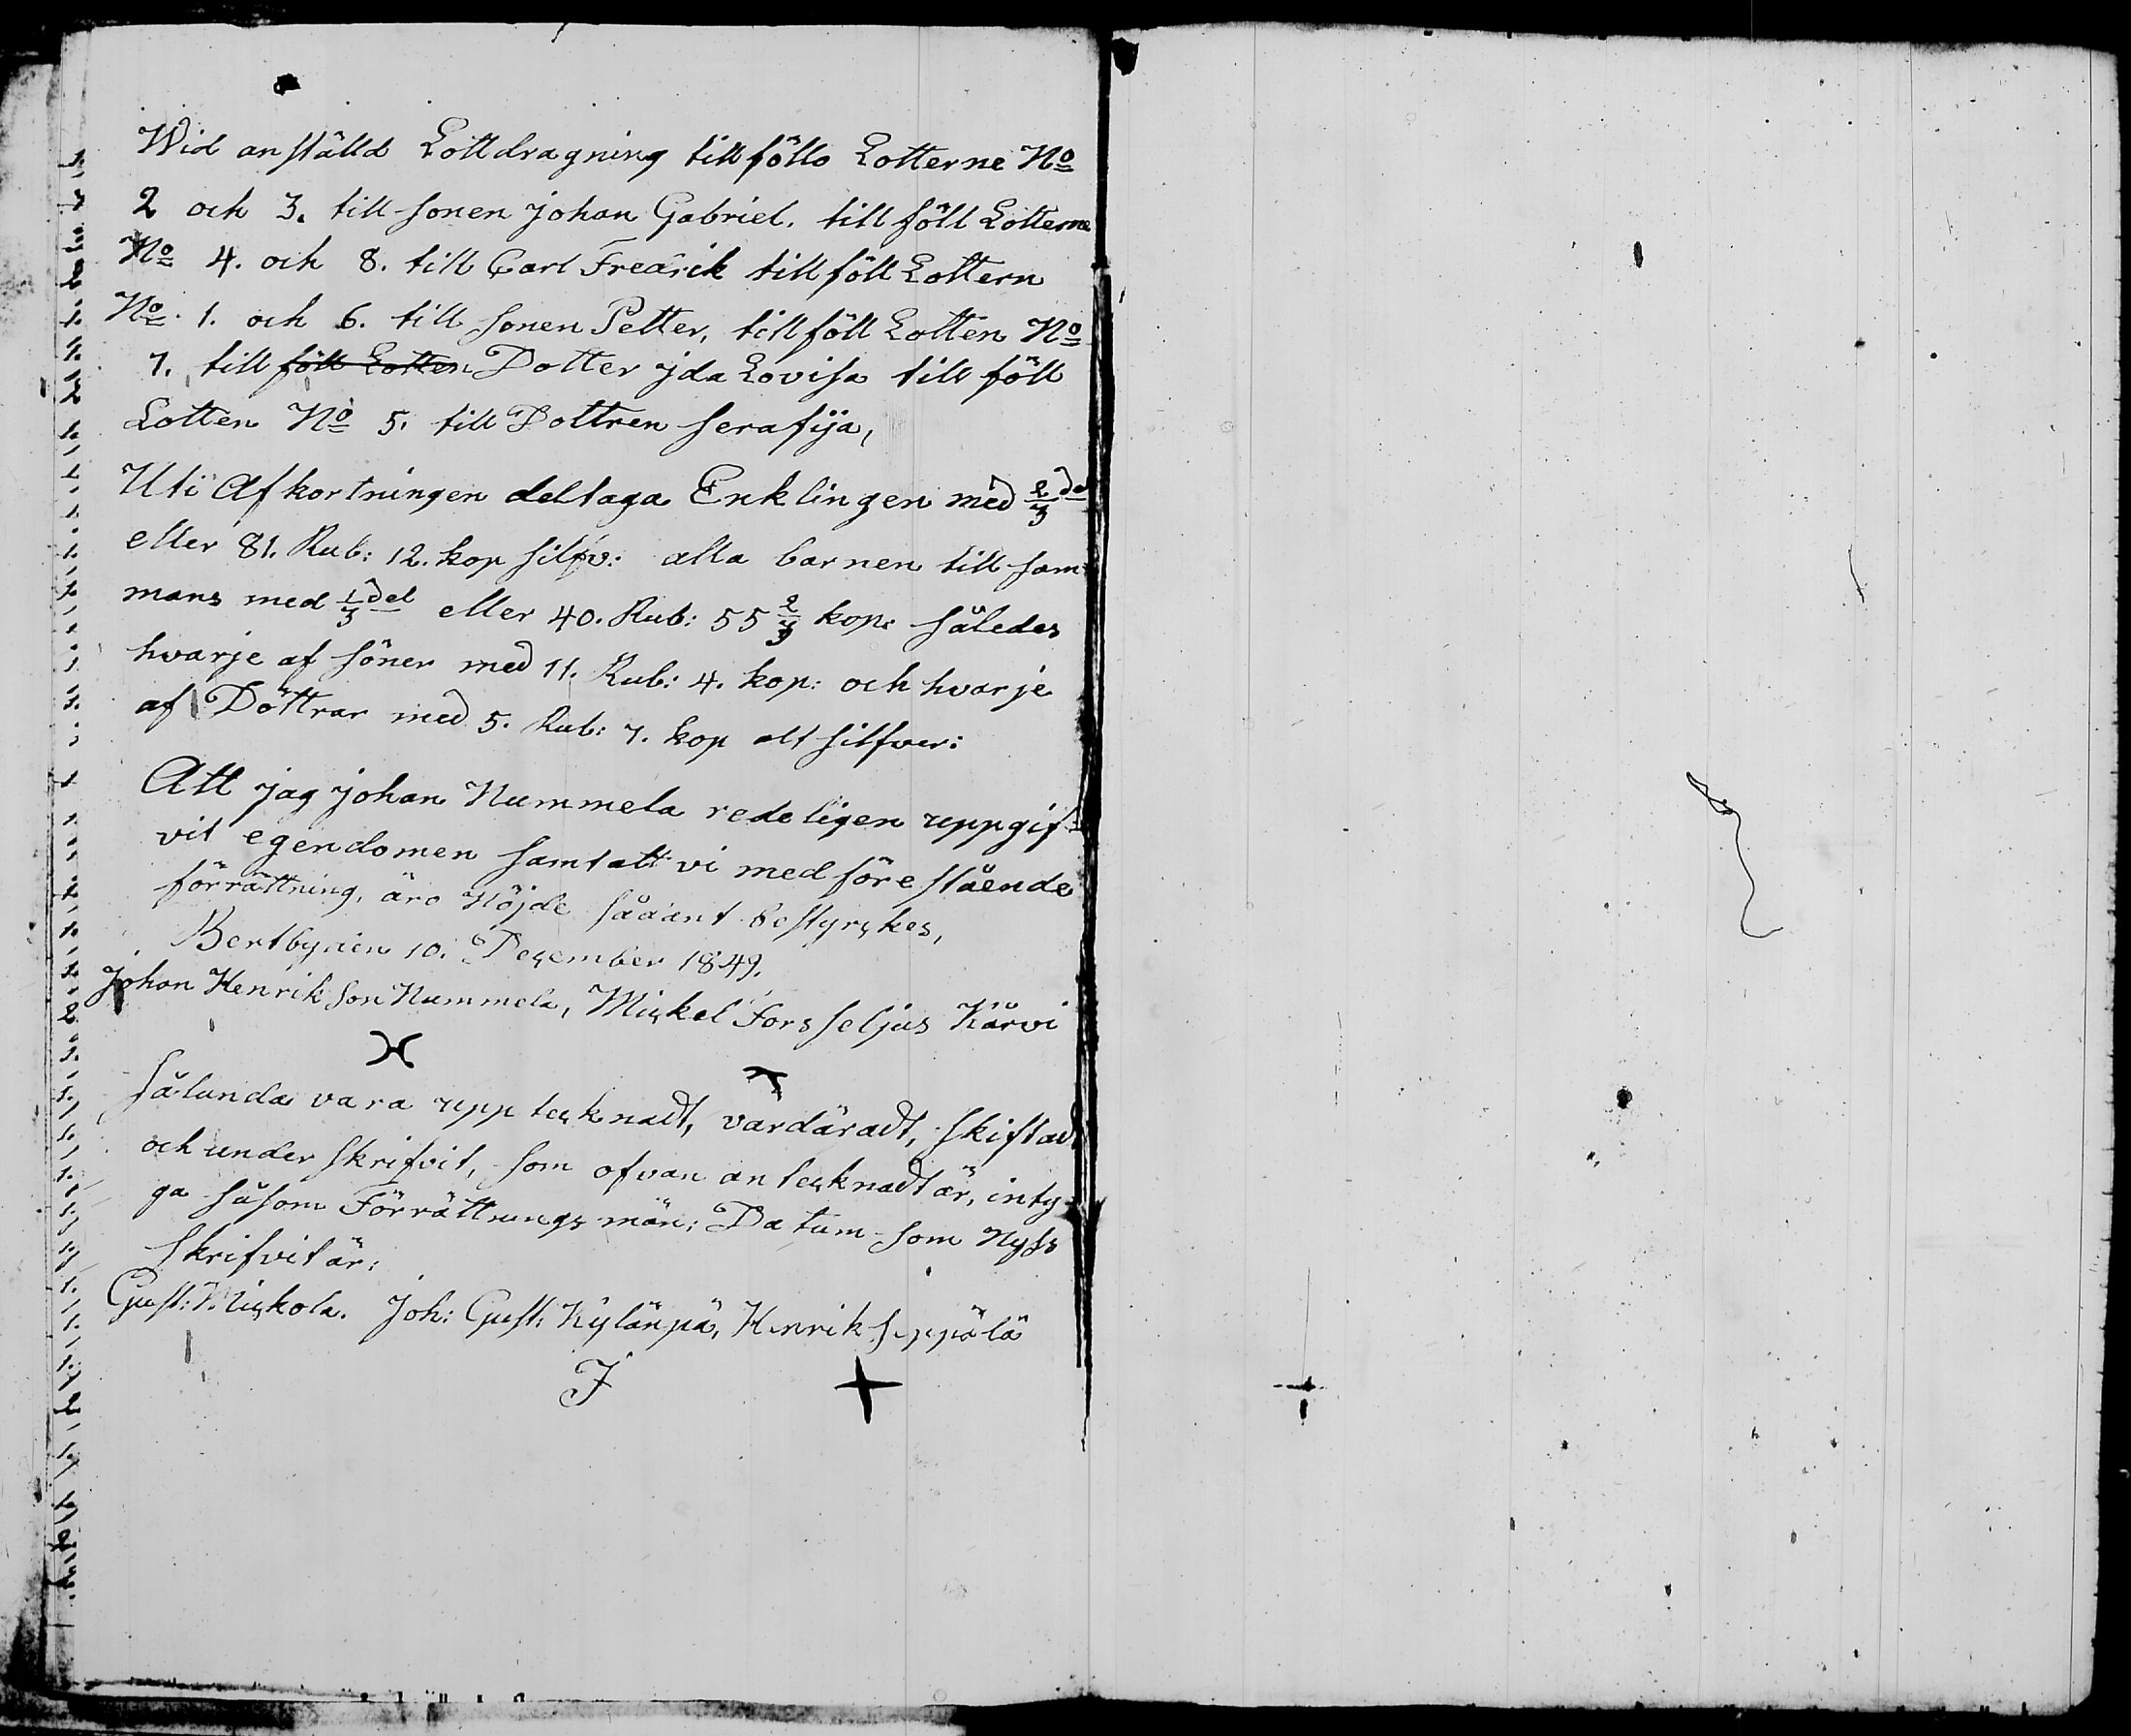 Wid anställd Lottdragning tillföllo Lotterne No
2 och 3. till sonen johan Gabriel. till föll Lotterne
No 4. och 8. till Carl Fredrik till föll Lottern
No. 1. och 6. till sonen Petter, till föll Lotten No
7. till föll Lotten Dotter jda Lovisa till föll
Lotten No 5. till Dottren serafija,
Uti Afkortningen deltaga Enklingen med 2/3 del
eller 81. Rub: 12. kop silfv: alla barnen till sam-
mans med 1/3 del eller 40. Rub: 55 2/3 kop: således
hvarje af söner med 11. Rub: 4. kop: och hvarje
af Döttrar med 5. Rub: 7. kop alt silfver:
Att jag johan Nummela redeligen uppgif-
vit egendomen samt att vi med före stående
förrättning, äro Nöjde sådant bestyrckes,
Bertbynen 10. December 1849.
Johan Henrikson Nummela, Mickel Forsseljus Kärvi
sålunda vara upp tecknadt, värdäradt, skiftad
och under skrifvit, som ofvan an tecknadt är, inty-
ga såsom Förrättnings män: Datum som Nyss
skrifvit är:
Gust: Mickola. Joh: Gust: Kylänpä, Henrik Seppälä
J +